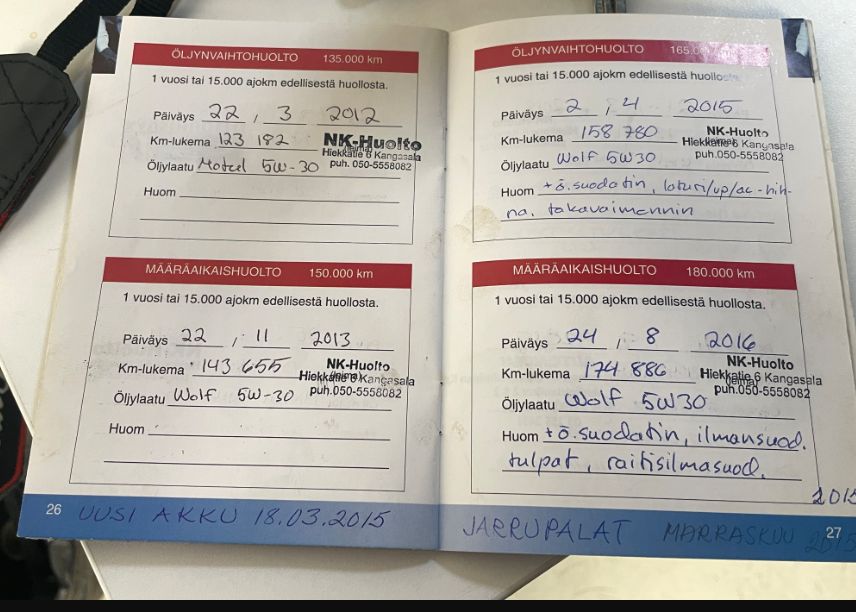 ÖLJYNVAIHTOHUOLTO 135.000 km
1 vuosi tai 15.000 ajokm edellisestä huollosta.
Päiväys 22 , 3 2012
Km-lukema 123 192
NK-Huolto
(leima)
Hiekkatie 6 Kangasala
puh. 050-5558082
Öljylaatu 5W-30
Huom
MÄÄRÄAIKAISHUOLTO 150.000 km
1 vuosi tai 15.000 ajokm edellisestä huollosta.
Päiväys 22 , 11 2013
Km-lukema 143 655
NK-Huolto
(leima)
Hiekkatie 6 Kangasala
puh.050-5558082
Öljylaatu Wolf 5W-30
Huom
26 UUSI AKKU 18.03.2015
ÖLJYNVAIHTOHUOLTO 165.0 km
1 vuosi tai 15.000 ajokm edellisestä huollosta.
Päiväys 2 , 4 2015
Km-lukema 158 780
NK-Huolto
(leima)
Hiekkatie 6 Kangasala
puh.050-5558082
Öljylaatu Wolf 5W30
Huom + ö.suodatin, laturi/vp/ac-hih-
na, takavaimennin
MÄÄRÄAIKAISHUOLTO 180.000 km
1 vuosi tai 15.000 ajokm edellisestä huollosta.
Päiväys 24 , 8 2016
Km-lukema 174 886
NK-Huolto
(leima)
Hiekkatie 6 Kangasala
puh.050-5558082
Öljylaatu Wolf 5W30
Huom + ö.suodatin, ilmansuod.
tulpat, raitisilmasuod.
2015
JARRUPALAT MARRASKUU 2015
27